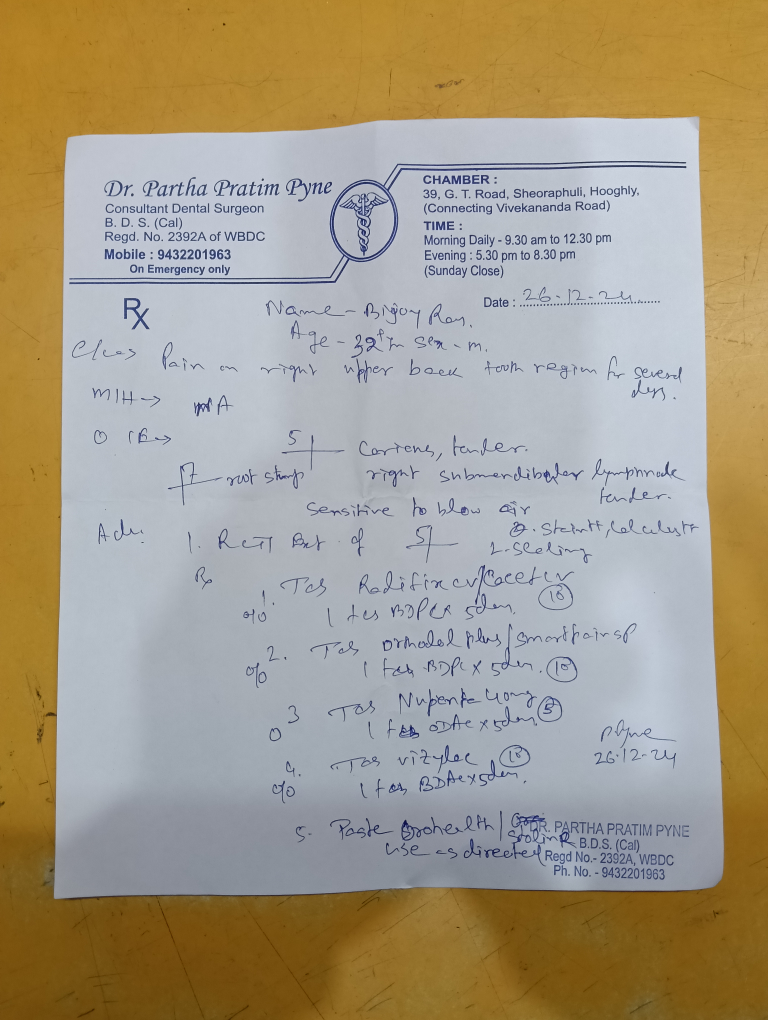 Dr. Partha Pratim Pyne
Consultant Dental Surgeon
B. D. S. (Cal)
Regd. No. 2392A of WBDC
Mobile : 9432201963
On Emergency only
CHAMBER :
39, G. T. Road, Sheoraphuli, Hooghly,
(Connecting Vivekananda Road)
TIME :
Morning Daily - 9.30 am to 12.30 pm
Evening : 5.30 pm to 8.30 pm
(Sunday Close)
Rx
Date : 26-12-24
Name - Bijoy Roy.
Age - 32 Sex - m.
Pain on right upper back tooth region for several
days.
M/H→ NA
O/E→
5 Carious, tender.
7 - root stump right submandibular lymphnode
tender.
Sensitive to blow air
Stain++, Calculus++
Adv. 1. RCT of 5
2. Scaling
Rx
1. Tab
1 tab BDPC x 5 days. (10)
2. Tab Ormodol plus/Smartpain SP
1 tab BDPC x 5 days. (10)
3 Tab 40mg (5)
1 tab ODAC x 5 days
4. Tab vizylac (10)
1 tab BDAC x 5 days.
5. Paste Orohealth/
use as directed
Pyne
26.12.24
DR. PARTHA PRATIM PYNE
B.D.S. (Cal)
Regd No.- 2392A, WBDC
Ph. No. - 9432201963